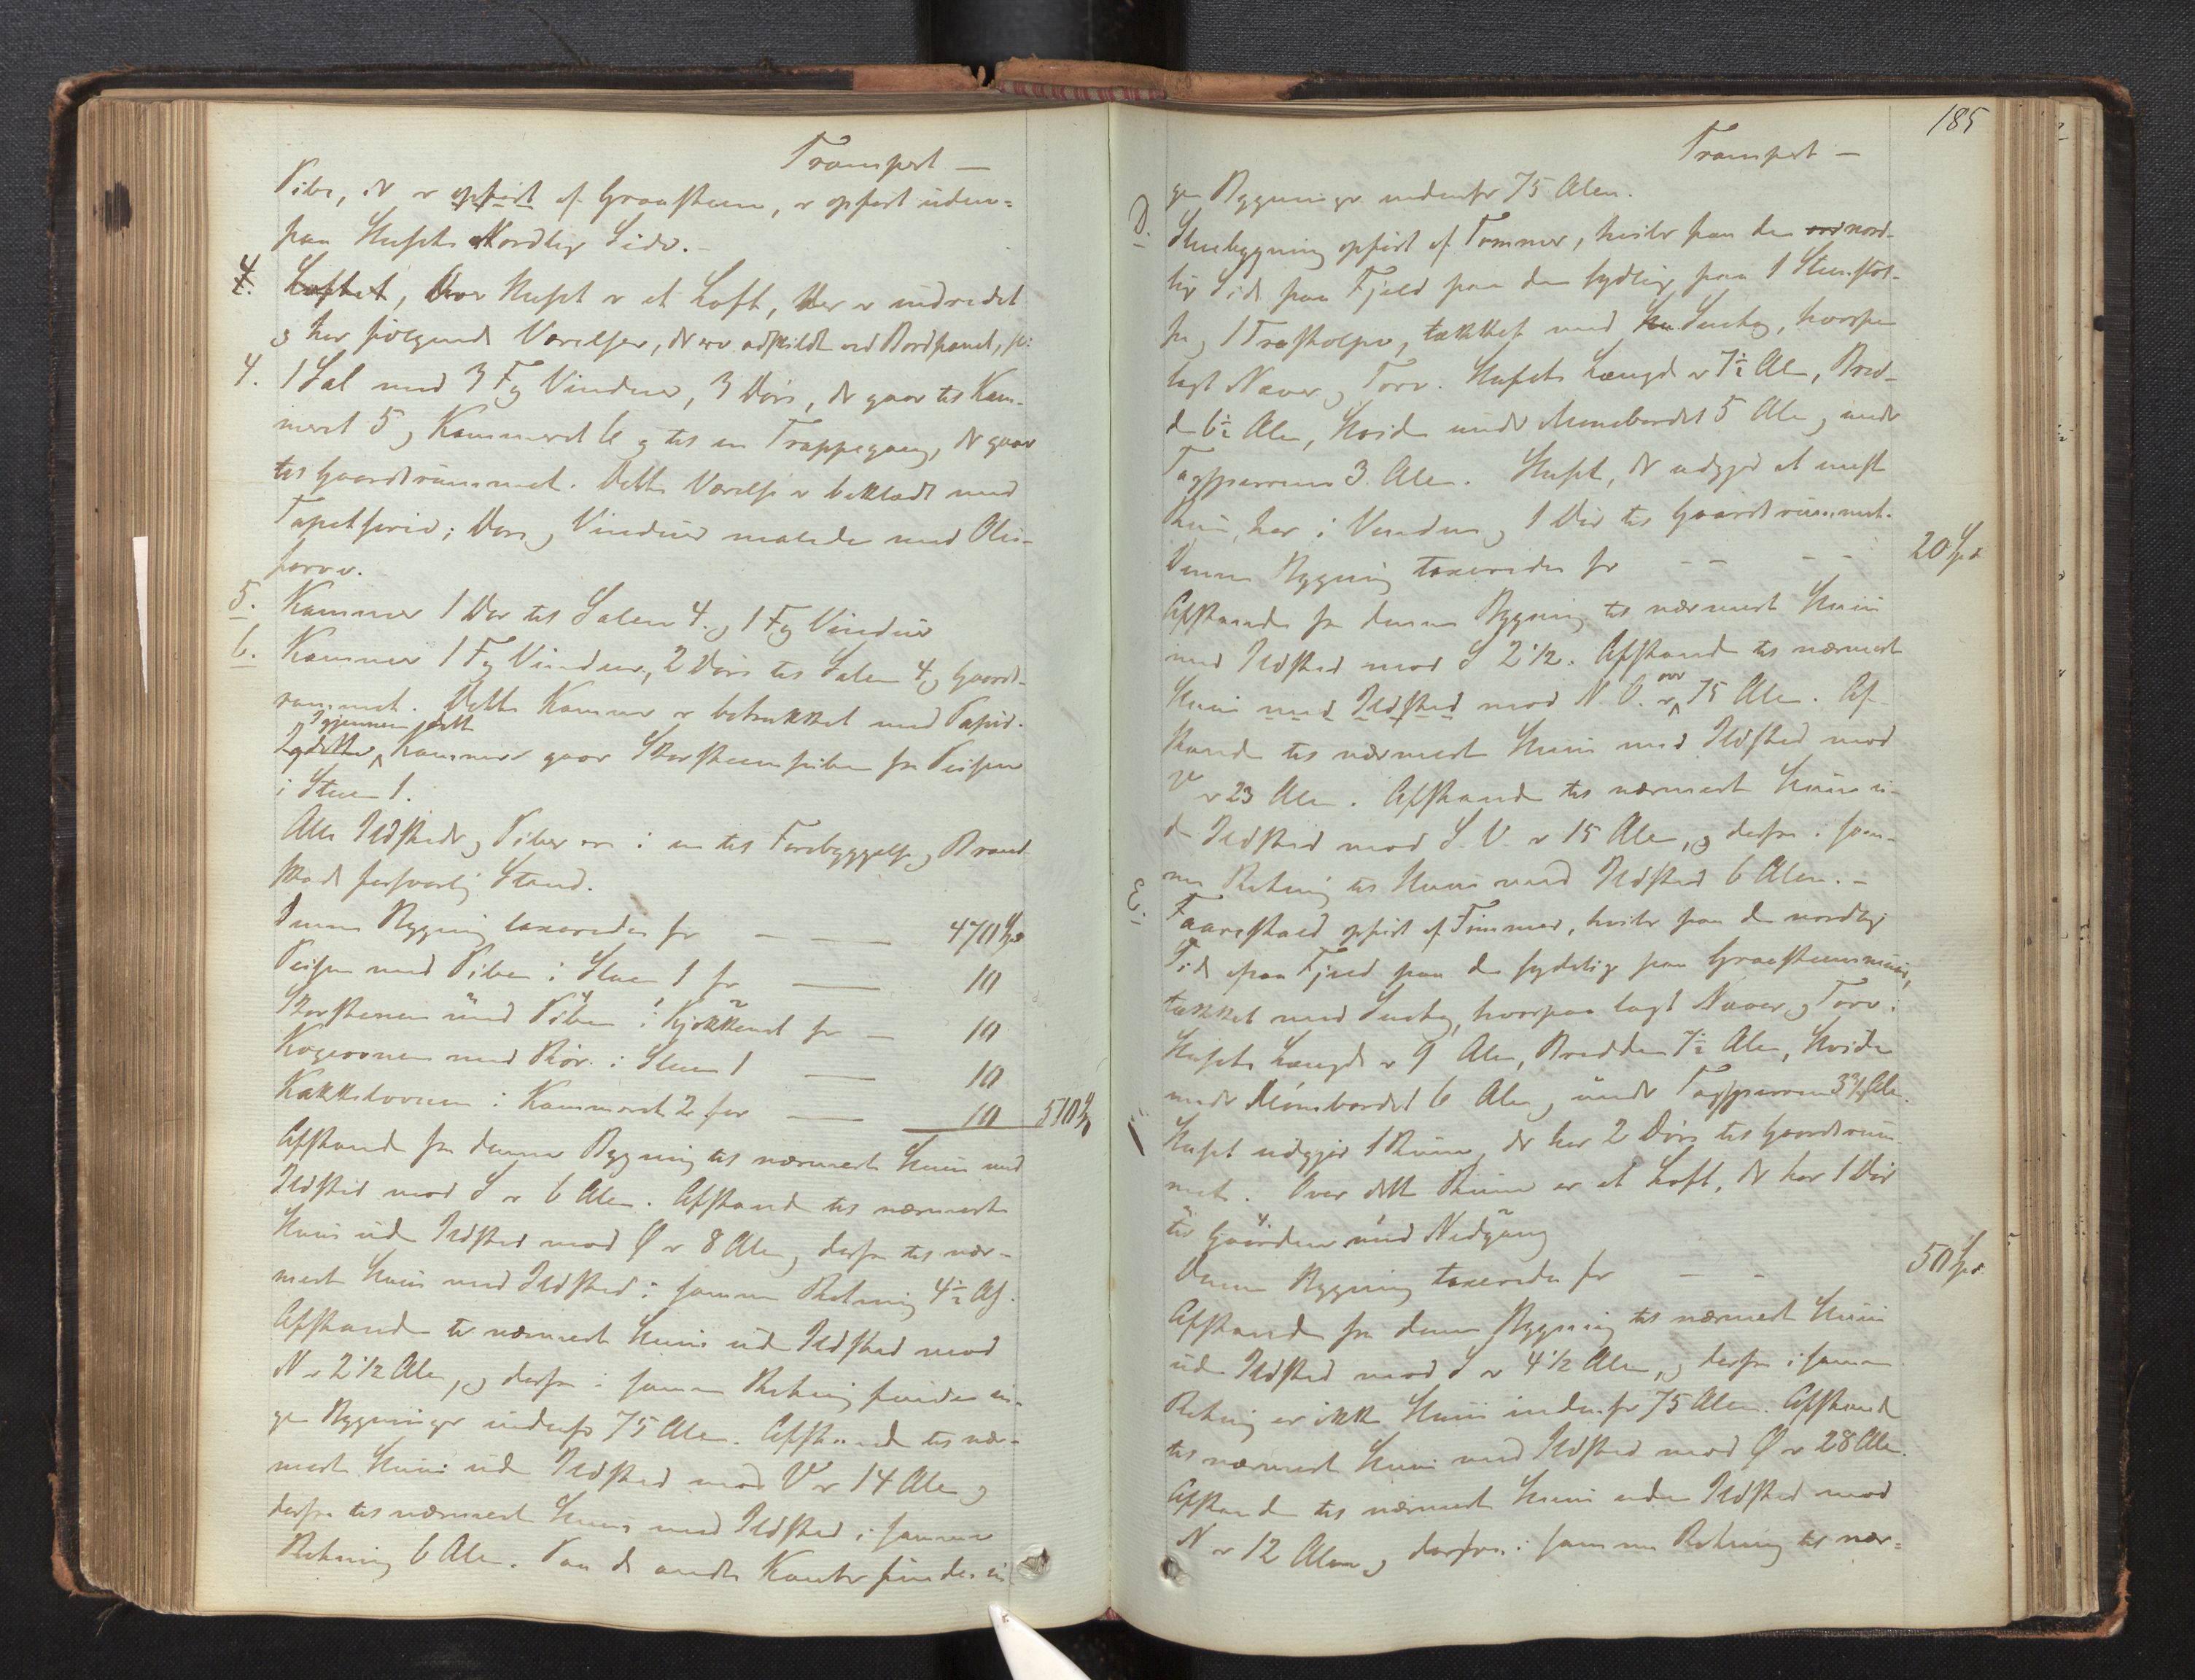 Transport —
Pibe, der er opført af Graasteen, er opført uden-
paa Husets Nordlige Side. -
4. Loftet, Over Huset er et Loft, der er indredet
og har følgende Værelser, der ere adskildt ved Bordpanel,
4. 1 Sal med 3 Fg Vinduer, 3 Døre, der gaar til Kam-
meret 5 og Kammeret 6 og til en Trappegang, der gaar
til Gaardsrummet. Dette Værelse er beklædt med
Tapetserie; Døre og Vinduer malede med Olie-
farve.
5. Kammer 1 Dør til Salen 4. og 1 Fg Vindue
6. Kammer 1 Fg Vindue, 2 Døre til Salen 4 og Gaards-
rummet. Dette Kammer er betrukket med Papir.
Igjennem dette
Kammer gaar Skorsteenspiben fra Peisen
i Stuen 1.
Alle Ildsteder og Piber ere i en til Forebyggelse og Brand-
skade forsvarlig Stand.
Denne Bygning taxeredes for — — 470 Spd
Peisen med Piben i Stuen 1 for — 10
Skorstenen med Piben i Kjøkkenet for — 10
Kogeovnen med Rør i Stuen 1 — 10
Kakkelovnen i Kammeret 2 for — 10 510 Spd
Afstanden fra denne Bygning til nærmeste Huus med
Ildsted mod S er 6 Alen. Afstanden til nærmeste
Huus uden Ildsted mod Ø er 8 Alen og derfra til nær-
meste Huus med Ildsted i samme Retning 4½ Al.
Afstanden til nærmeste Huus uden Ildsted mod
N er 2 1/2 Alen, og derfra i samme Retning findes in-
gen Bygninger indenfor 75 Alen. Afstanden til nær-
meste Huus uden Ildsted mod V er 14 Alen og
derfra til nærmeste Huus med Ildsted i samme
Retning 6 Alen. Paa de andre Kanter findes in-
185
Transport —
gen Bygninger indenfor 75 Alen.
D. Bygning opført af Tømmer, hviler paa den nord-
lige Side paa Fjeld paa den sydlige paa 1 Steenstol-
pe og 1 Træstolpe, tækket med Sutag, hvorpaa
lagt Næver og Torv. Husets Længde er 7½ Alen, Bred-
den 6½ Alen, Høiden under Mønebordet 5 Alen og under
Tagsperrene 3 Alen. Huset, der udgjør et
Rum, har 1 Vindue og 1 Dør til Gaardsrummet.
Denne Bygning taxeredes for — — — 20 Spd
Afstanden fra denne Bygning til nærmeste Huus
med Ildsted mod S 2 1/2. Afstanden til nærmeste
Huus med Ildsted mod N. O. er over 75 Alen. Af-
standen til nærmeste Huus med Ildsted mod
V er 23 Alen. Afstanden til nærmeste Huus u-
den Ildsted mod S. V. er 15 Alen, og derfra i sam-
me Retning til Huus med Ildsted 6 Alen. -
E. Faarestald opført af Tømmer, hviler paa den nordlige
Side paa Fjeld paa den sydlige paa Graasteensmuur,
tækket med Sutag, hvorpaa lagt Næver og Torv.
Husets Længde er 9 Alen, Bredden 7½ Alen, Høiden
under Mønebordet 6 Alen og under Tagsperrene 3 Alen.
Huset udgjør 1 Rum, der har 2 Døre til Gaardsrum-
met. Over dette Rum er et Loft, der har 1 Dør
til Gaarden med Nedgang
Denne Bygning taxeredes for — — 50 Spd
Afstanden fra denne Bygning til nærmeste Huus
uden Ildsted mod S er 4 1/2 Alen, og derfra i samme
Retning er ikke Huus indenfor 75 Alen. Afstanden
til nærmeste Huus med Ildsted mod Ø er 28 Alen.
Afstanden til nærmeste Huus uden Ildsted mod
N er 12 Alen og derfra i samme Retning til nær-